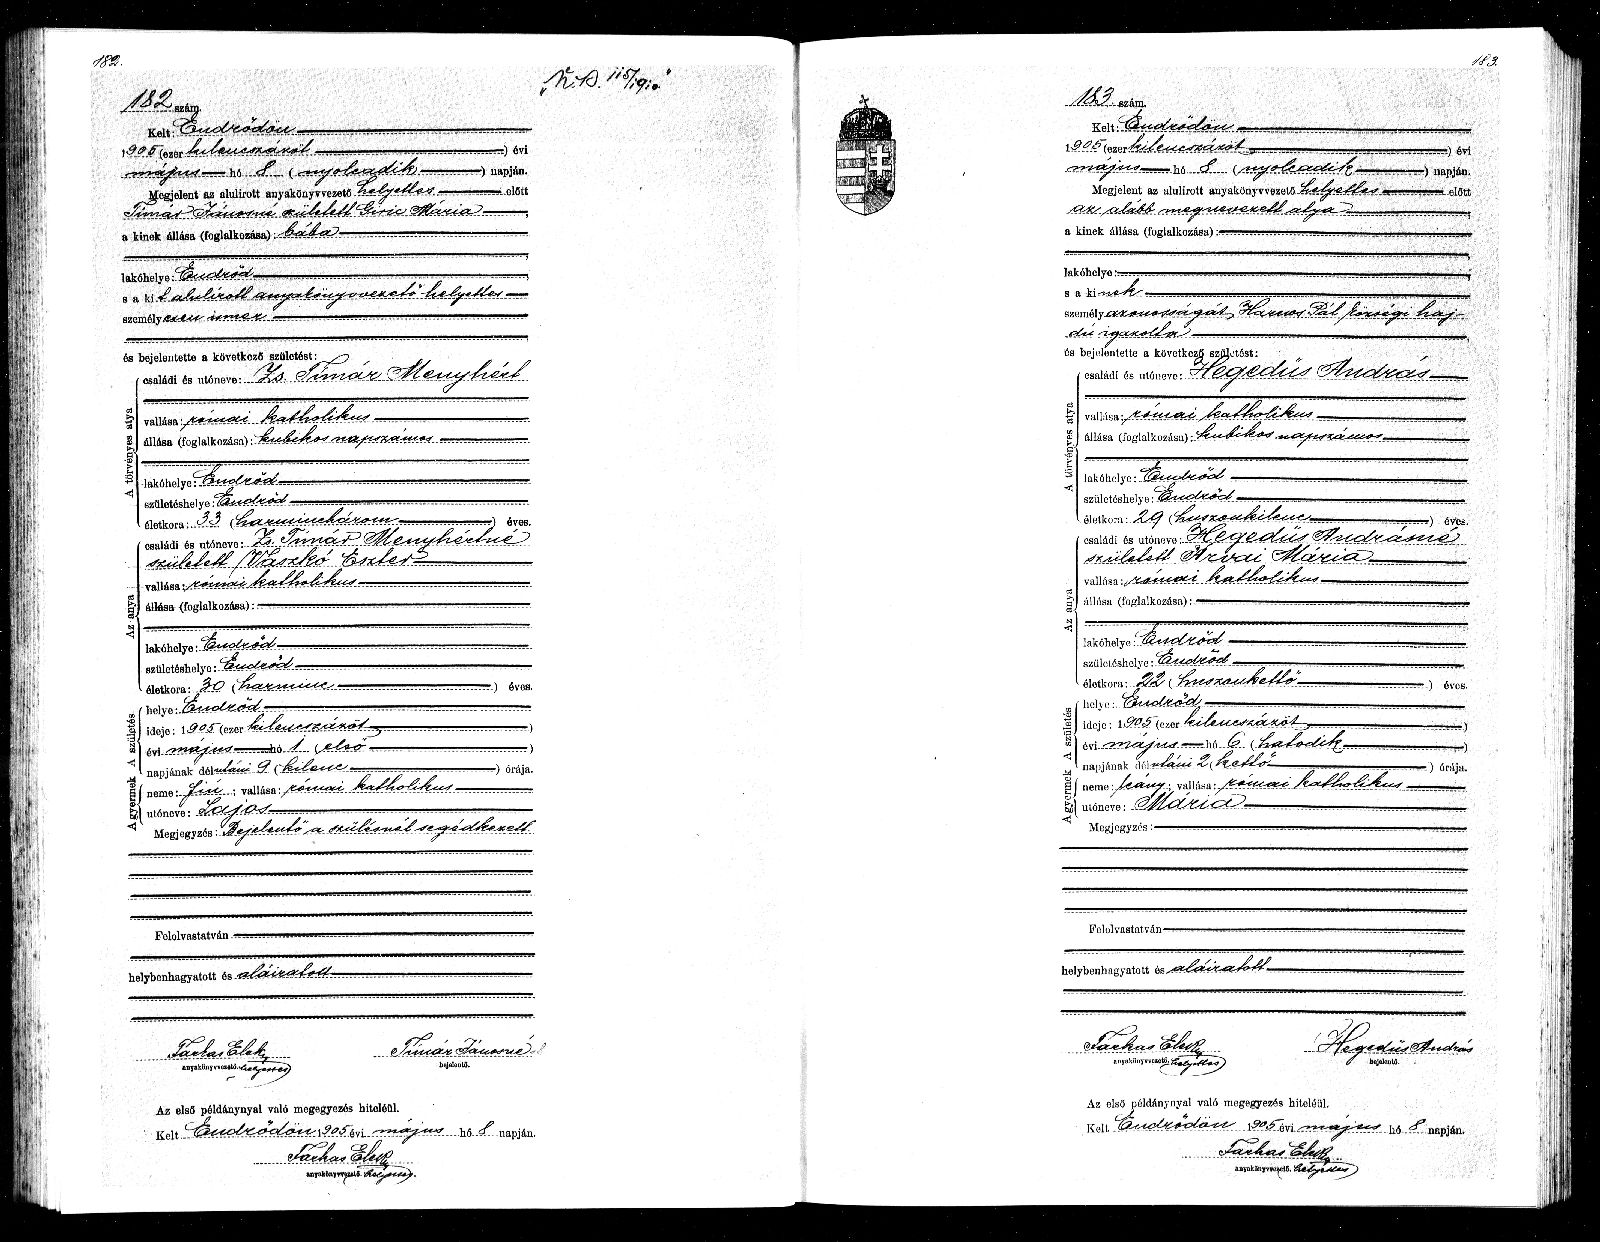 182.
„K.A. 115/910."
182 szám.
Kelt: Endrődön
1905 (ezer kilencszázöt ) évi
május hó 8 (nyolcadik ) napján.
Megjelent az alulirott anyakönyvvezető helyettes előtt
Tímár Jánosné született Giric Mária
a kinek állása (foglalkozása): bába
lakóhelye: Endrőd
s a kit alulírott anyakönyvvezető helyettes
személyesen ismer
és bejelentette a következő születést:
A törvényes atya
családi és utóneve: Zs. Tímár Menyhért
vallása: római katholikus
állása (foglalkozása): kubikos napszámos
lakóhelye: Endrőd
születéshelye: Endrőd
életkora: 33 (harminchárom ) éves.
Az anya
családi és utóneve: Zs. Tímár Menyhértné
született Vaszkó Eszter
vallása: római katholikus
állása (foglalkozása):
lakóhelye: Endrőd
születéshelye: Endrőd
életkora: 30 (harminc ) éves.
A születés
helye: Endrőd
ideje: 1905 (ezer kilencszázöt )
évi május hó 1 (első )
napjának délutáni 9 (kilenc ) órája.
A gyermek
neme: fiú ; vallása: római katholikus
utóneve: Lajos
Megjegyzés: Bejelentő a szülésnél segédkezett
Felolvastatván
helybenhagyatott és aláiratott
Farkas Elek Tímár Jánosné
anyakönyvvezető. helyettes bejelentő.
Az első példánynyal való megegyezés hiteléül.
Kelt Endrődön 1905 évi május hó 8 napján.
Farkas Elek
anyakönyvvezető. helyettes.
183.
183 szám.
Kelt: Endrődön
1905 (ezer kilencszázöt ) évi
május hó 8 (nyolcadik ) napján.
Megjelent az alulirott anyakönyvvezető helyettes előtt
az alább megnevezett atya
a kinek állása (foglalkozása):
lakóhelye:
s a kinek
személyazonosságát Harmos Pál községi haj-
dú igazolta
és bejelentette a következő születést:
A törvényes atya
családi és utóneve: Hegedüs András
vallása: római katholikus
állása (foglalkozása): kubikos napszámos
lakóhelye: Endrőd
születéshelye: Endrőd
életkora: 29 (huszonkilenc ) éves.
Az anya
családi és utóneve: Hegedüs Andrásné
született Arvai Mária
vallása: római katholikus
állása (foglalkozása):
lakóhelye: Endrőd
születéshelye: Endrőd
életkora: 22 (huszonkettő ) éves.
A születés
helye: Endrőd
ideje: 1905 (ezer kilencszázöt )
évi május hó 6 (hatodik )
napjának délutáni 2 (kettő ) órája.
A gyermek
neme: leány ; vallása: római katholikus
utóneve: Mária
Megjegyzés:
Felolvastatván
helybenhagyatott és aláiratott
Farkas Elek Hegedüs András
anyakönyvvezető. helyettes bejelentő.
Az első példánynyal való megegyezés hiteléül.
Kelt Endrődön 1905 évi május hó 8 napján.
Farkas Elek
anyakönyvvezető. helyettes